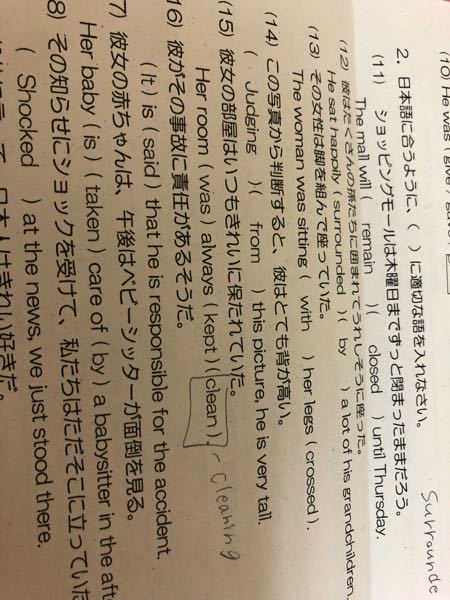 (10) He was
2. 日本語に合うように、( )に適切な語を入れなさい。
(11) ショッピングモールは木曜日までずっと閉まったままだろう。
The mall will ( remain )( closed ) until Thursday.
(12) 彼はたくさんの孫たちに囲まれてうれしそうに座った。
He sat happily ( surrounded )( by ) a lot of his grandchildren.
Surrounde
(13) その女性は脚を組んで座っていた。
The woman was sitting ( with ) her legs ( crossed ).
(14) この写真から判断すると、彼はとても背が高い。
( Judging )( from ) this picture, he is very tall.
(15) 彼女の部屋はいつもきれいに保たれていた。
Her room ( was ) always ( kept ) ( clean ).
cleaning
16) 彼がその事故に責任があるそうだ。
( It ) is ( said ) that he is responsible for the accident.
7) 彼女の赤ちゃんは、午後はベビーシッターが面倒を見る。
Her baby ( is ) ( taken ) care of ( by ) a babysitter in the aft
8) その知らせにショックを受けて、私たちはただそこに立ってい
( Shocked ) at the news, we just stood there.
日本人はきれい好きだ。